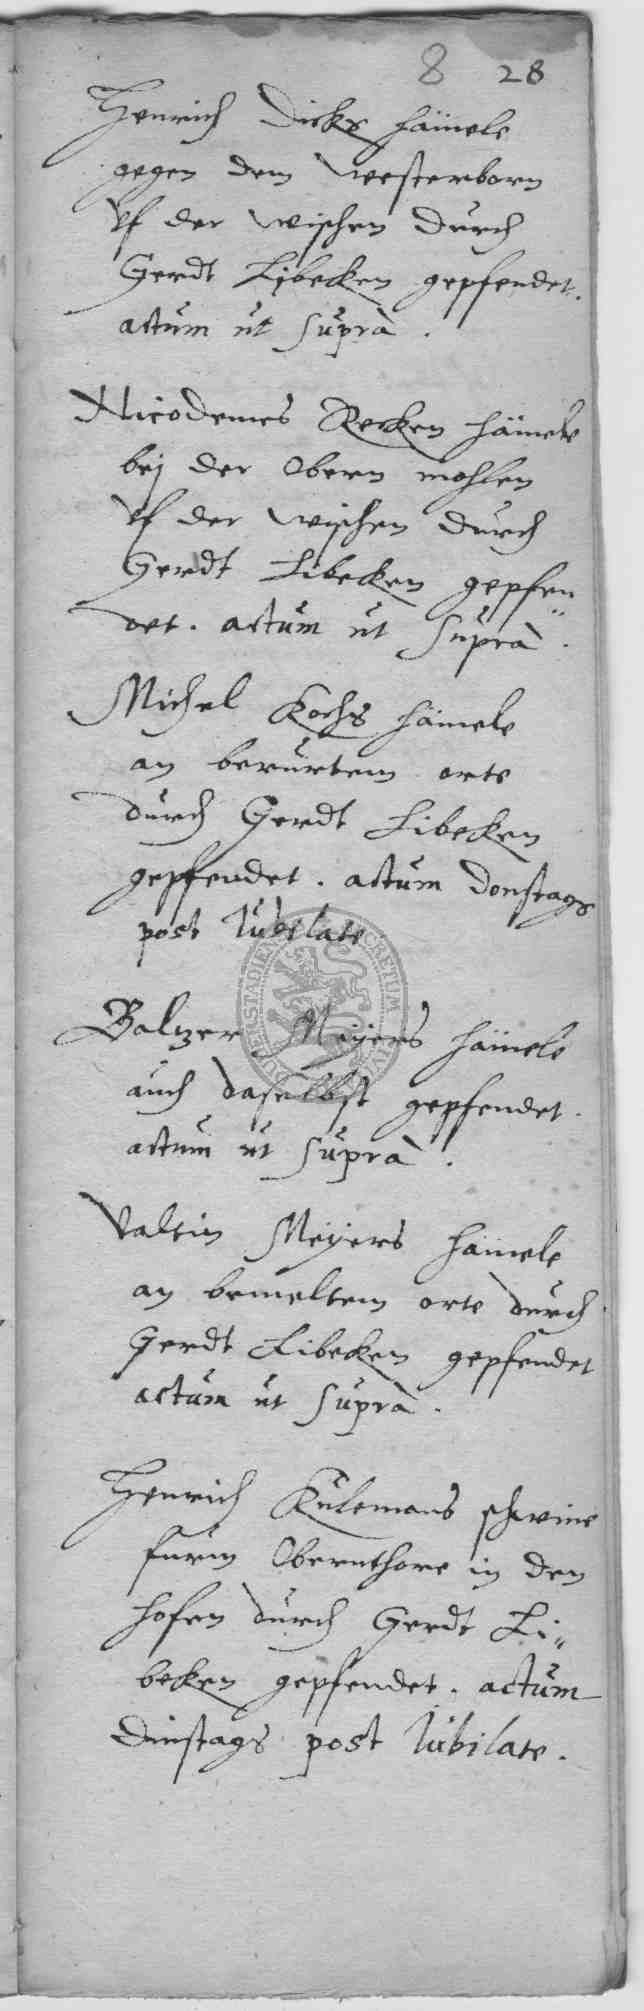 8 28
Henrich Dicks hämele
gegen dem westerborn
vf der wischen durch
Gerdt Libecken gepfendet.
actum ut suprà.
Nicodemes Recken hämele
bej der Obern mohlen
vf der wischen durch
Gerdt Libecken gepfen„
det. actum ut suprà.
Michel Kochs hämele
an berürtem orte
durch Gerdt Libeken
gepfendet. actum Donstags
post Iubilate
Baltzer Meijers hämele
auch daselbst gepfendet.
actum ut suprà.
Valtin Meijers hämele
an bemeltem orte durch
Gerdt Libeken gepfendet
actum ut suprà.
Henrich Kulemans schwine
furm Obernthore in den
hofen durch Gerdt Li„
beken gepfendet. actum
Dinstags post Iubilate.